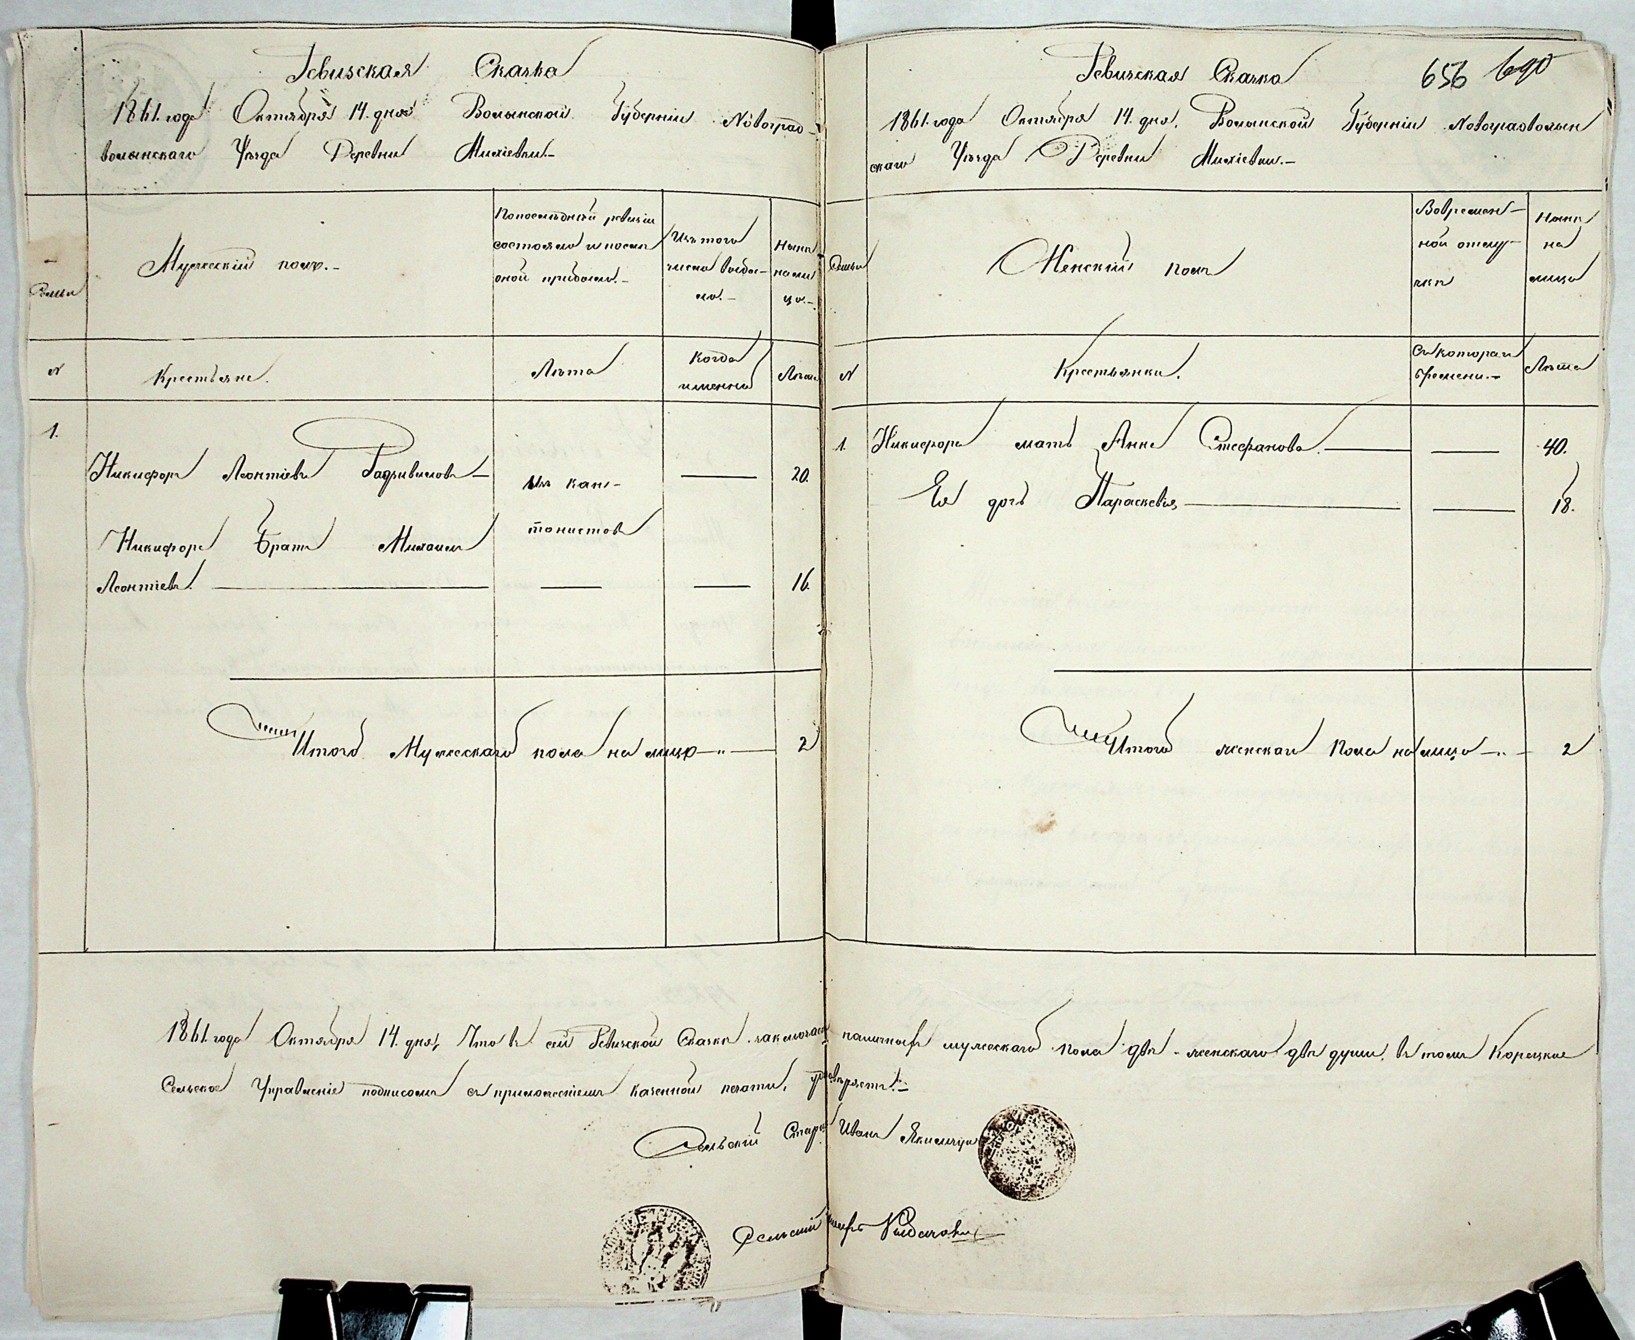 Ревизская Сказка
1861. года Октября 14. дня Волынской Губерніи Новоград-
волынскаго Уѣзда Деревни
Семьи
Мужескій полъ.-
По последней ревизіи
состояло и после
оной прибыло.-
Изъ того
числа выбы-
ло.-
Ныне
на ли
цо.-
N
Крестьяне.
Лѣта
Когда
именно
Лѣта
1.
Никифоръ Леонтіевъ
Изъ кан-
тонистовъ
20.
Никифора Братъ Михаилъ
Леонтіевъ
16.
Итого Мужескаго пола на лицо 2
656 690
Ревизская Сказка
1861. года Октября 14. дня. Волынской Губерніи Новоградволын
скаго Уѣзда Деревни
Семьи
Женскій полъ
Во времен-
ной отлу-
чкѣ
Ныне
на
лицо
N
Крестьянки.
Съ котораго
времени.-
Лѣта
1. Никифора мать Анна Стефанова. 40.
Ея дочь Параскевія 18.
Итого женскаго пола на лицо 2
1861. года Октября 14. дня, Что въ сей Ревизской Сказки заключается наличныхъ мужескаго пола двѣ - женскаго двѣ души, въ томъ Корецкое
Сельское Управленіе подписомъ съ приложеніемъ казенной печати, удостоверяетъ.-
Сельскій Староста Иванъ
Сельскій писарь